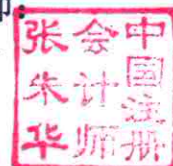 中国注册
会计师
张朱华